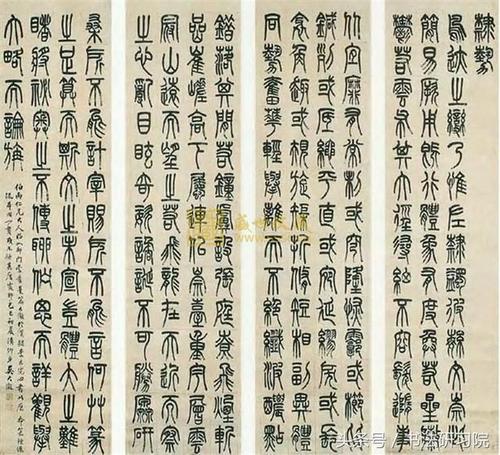 隸勢
鳥跡之變乃惟左隸蠲彼繁文崇此
簡易厥用既弘體象有度煥若星陳
鬱若雲布其大徑尋細不容髮隨事
從宜靡有常制或穹隆恢廓或櫛比
鍼列或砥繩平直或蜿蜒膠戾或長
邪角趣或規旋矩折修短相副異體
同勢奮華輕舉離而不絕纖波濃點
錯落其間若鐘虡設張庭燎飛煙嶄
嵒嵯峨高下屬連似崇臺重宇層雲
冠山遠而望之若飛龍在天近而察
之心亂目眩奇姿譎詭不可勝原研
桑所不能計宰賜所不能言何草篆
之足算而斯文之未宣豈體大之難
睹將祕奧之不傳聊俯仰而詳觀舉
大略而論旃
吳大澂
盛世收藏
头条号 / 书法研习院